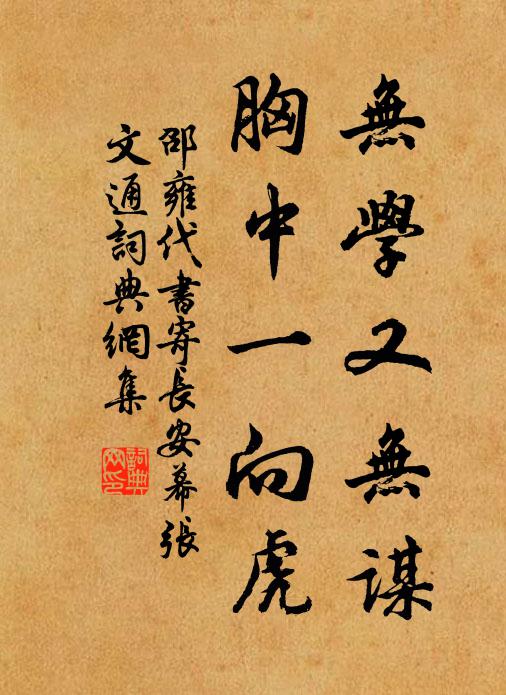 無學又無謀
胸中一向虎
邵雍代書寄長安幕張
文通詞典網集
詞典網印